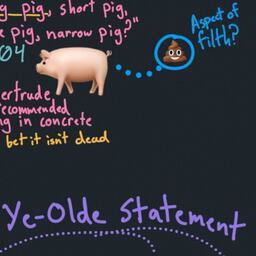 g pig, short pig,
e pig, narrow pig?"
04
Aspect of
filth?
ertrude
recommended
ng in concrete
bet it isn't dead
Ye-Olde Statement